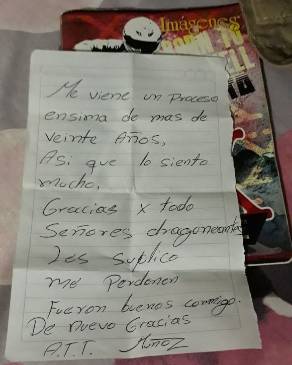 Imágenes
Me viene un Proceso
ensima de mas de
veinte Años,
Asi que lo siento
mucho,
Gracias x todo
Señores dragoneantes
Les Suplico
me Perdonen
Fueron buenos conmigo.
De nuevo Gracias
A.T.T. Muñoz